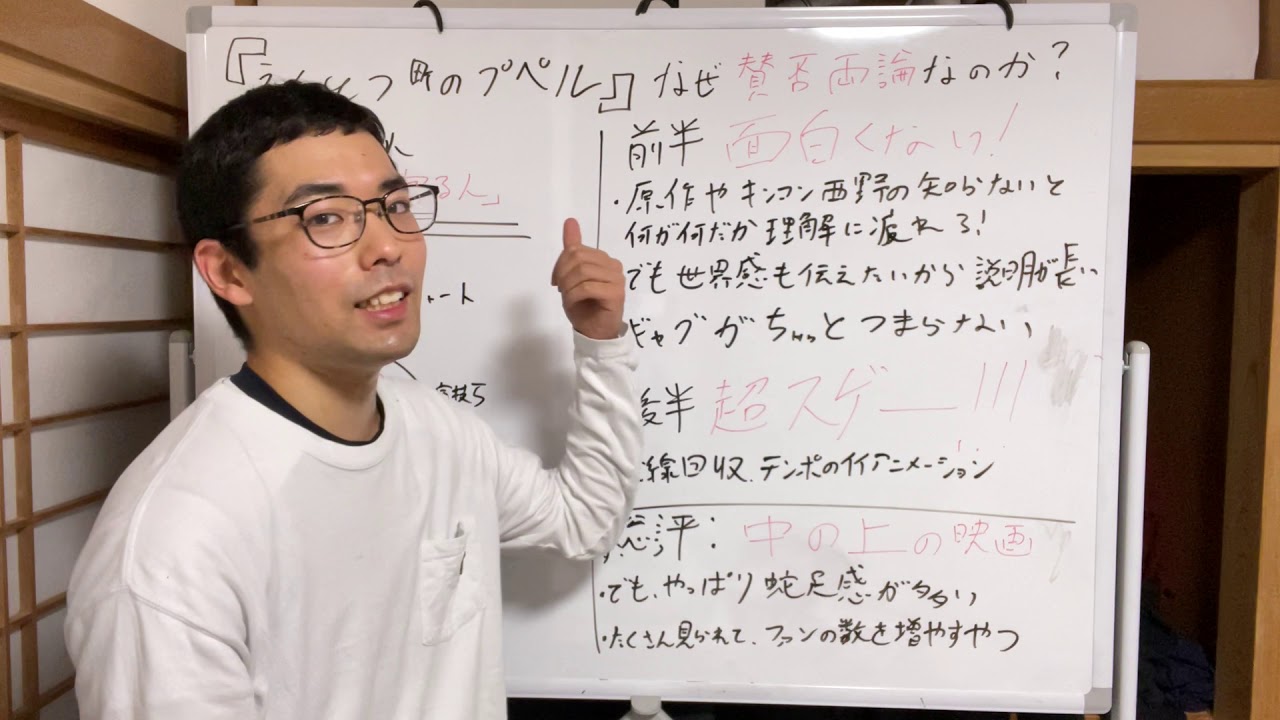 『えんとつ町のプペル』なぜ賛否両論なのか?
る人」
ート
前半 面白くない!
・原作やキンコン西野の知らないと
何が何だか理解に疲れる!
でも世界感も伝えたいから説明が長い
ギャグがちょっとつまらない
後半 超スゲー!!!
線回収、テンポのイイアニメーション
総評:中の上の映画
・でも、やっぱり蛇足感が多い
・たくさん見られて、ファンの数を増やすやつ